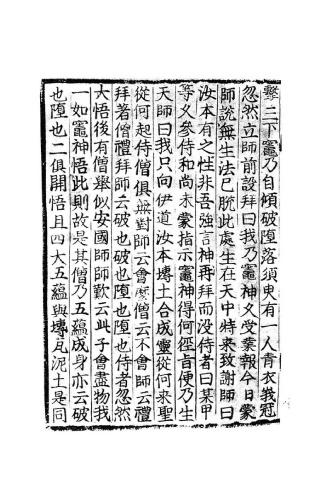 擊三下竈乃自傾破墮落須臾有一人青衣峩冠
忽然立師前設拜曰我乃竈神久受業報今日蒙
師說無生法已脫此處生在天中特來致謝師曰
汝本有之性非吾強言神再拜而沒侍者曰某甲
等久參侍和尚未蒙指示竈神得何徑旨便乃生
天師曰我只向伊道汝本塼土合成靈從何來聖
從何起侍僧俱無對師云會麽僧云不會師云禮
拜著僧禮拜師云破也破也墮也墮也侍者忽然
大悟後有僧舉似安國師師歎云此子會盡物我
一如竈神悟此則故是其僧乃五蘊成身亦云破
也墮也二俱開悟且四大五蘊與塼瓦泥土是同